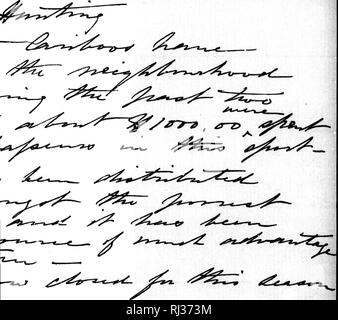 Hunting
- Cariboos have -
the neighbourhood
ing the past two
about $1000.00, were spent
in this sport -
been distributed
ngst the poorest
and it has been
ource of much advantage
-
closed for this season
RJ373M